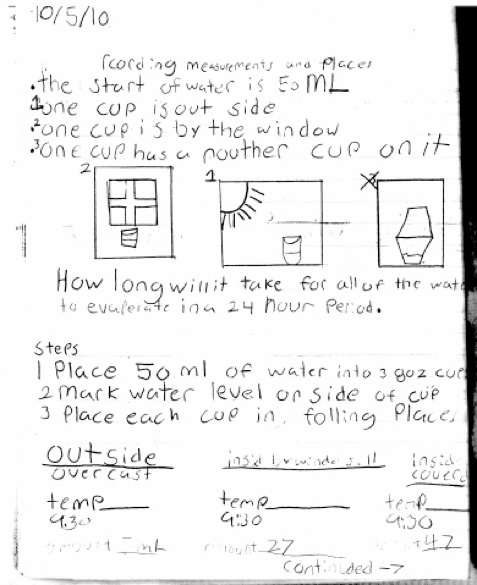 10/5/10
rcording measurements and places
.the start of water is 50 ML
1 one cup is out side
.2 one cup is by the window
.3 one cup has a nouther cup on it
2 1 3
How long will it take for all of the wat
to evaperate in a 24 hour Period.
Steps
1 Place 50 ml of water into 3 9oz cup
2 Mark water level on side of cup
3 Place each cup in folling Place
outside insid by windo sill insid
over cast coverd
temp___ temp___ temp___
9:30 9:30 9:30
amount mL amount 27 47
continided →